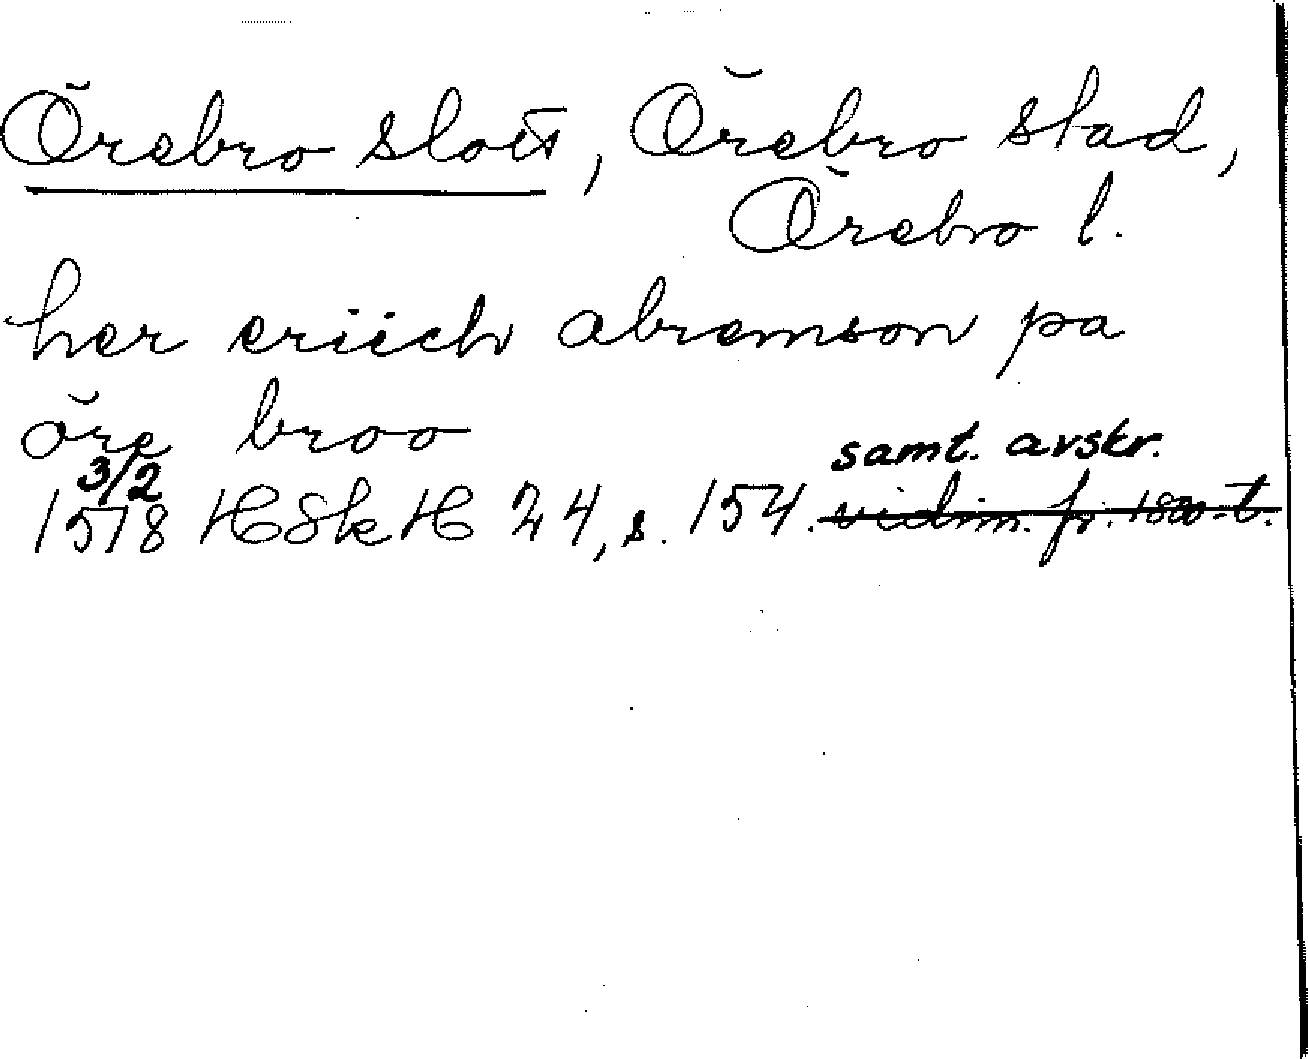 Örebro slott, Örebro stad,
Örebro l.
her eriich abramson pa
öre broo
samt. avskr.
3/2
1518 HSkH 24, s. 154. vidim. fr. 1800-t.